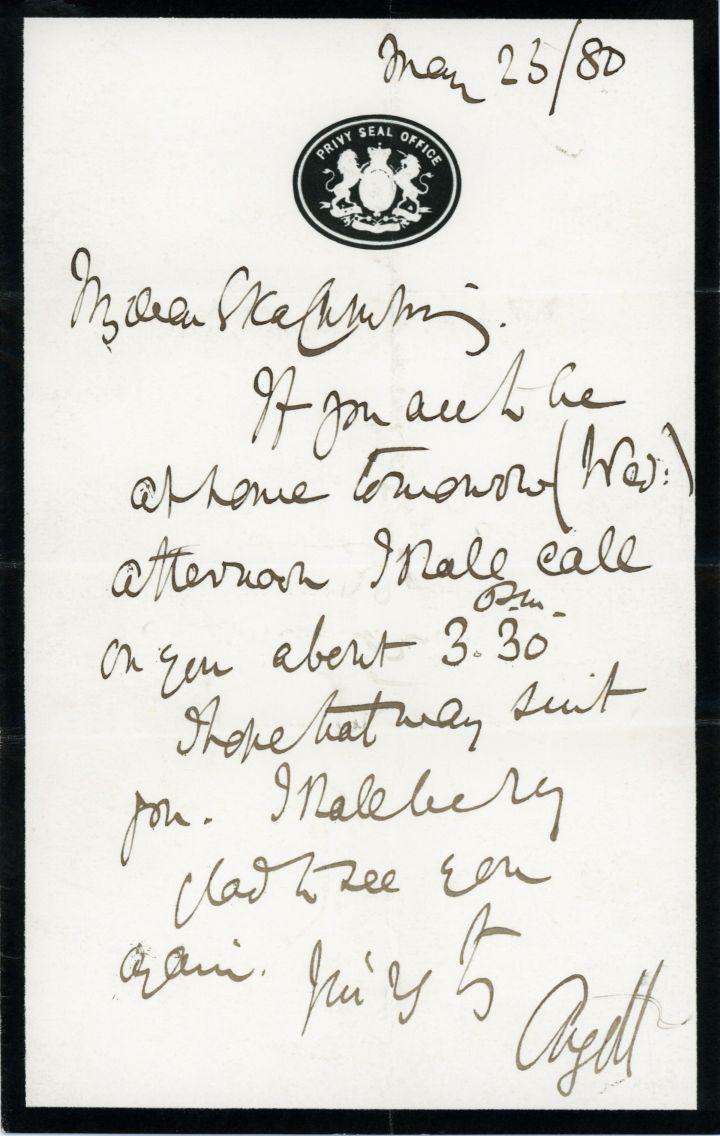 May 25/80
PRIVY SEAL OFFICE
My dear
If you are to be
at home tomorrow (Wed:)
afternoon I shall call
on you about 3.30 p.m.
I hope that may suit
you. I shall be very
glad to see you
again. Yours
Argyll